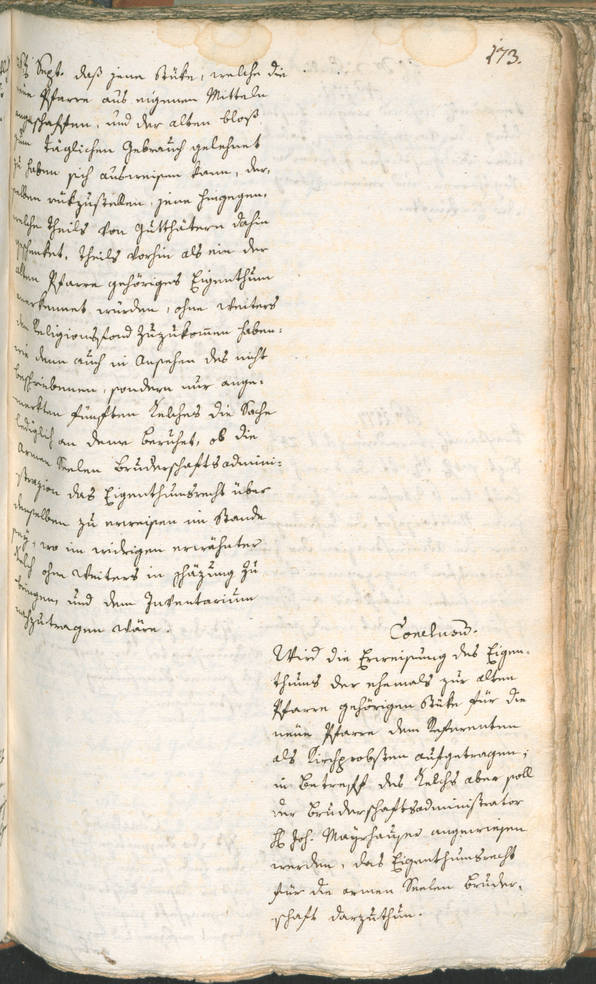 173.
Sept. daß jene Stüke, welche die
neüe Pfarre aus eigenen Mitteln
angeschaffen, und der alten bloß
zum täglichen Gebrauch gelehnet
zu haben sich ausweisen kann, der-
selben rükzustellen, jene hingegen,
welche theils von Gutthätern dahin
geschenket, theils vorhin als ein der
alten Pfarre gehöriges Eigenthum
anerkennet würden, ohne weiters
dem Religionsfond zuzukom̄en haben:
wie denn auch in Ansehen des nicht
beschriebenen, sondern nur ange-
merkten fünften Kelches die Sache
lediglich an deme beruhet, ob die
Armen Seelen Bruderschaftsadmini-
strazion das Eigenthumsrecht über
denselben zu erweisen im Stande
sey, wo im widrigen erwähnter
Kelch ohne weiters in schäzung zu
bringen, und dem Inventarium
nachzutragen wäre.
Conclusū.
Wird die Erweisung des Eigen-
thums der ehemals zur alten
Pfarre gehörigen Stüke für die
neüe Pfarre dem Referenten
als Kirchprobsten aufgetragen;
in Betreff des Kelchs aber soll
der Bruderschaftsadministrator
H Joh. Mayrhauser angewiesen
werden, das Eigenthumsrecht
für die armen Seelen Bruder-
schaft darzuthun.